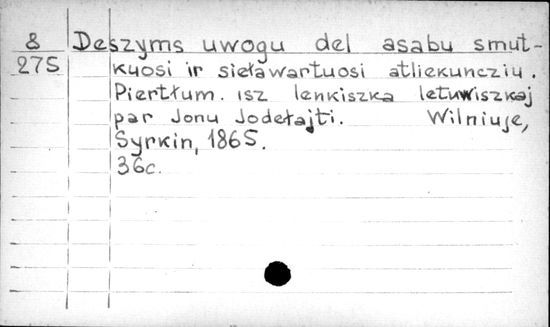 8 Deszyms uwogu del asabu smut-
275 kuosi ir sieławartuosi atliekuncziu.
Piertłum. isz lenkiszka letuwiszkaj
par Jonu Jodełajti. Wilniuje,
Syrkin, 1865.
36c.